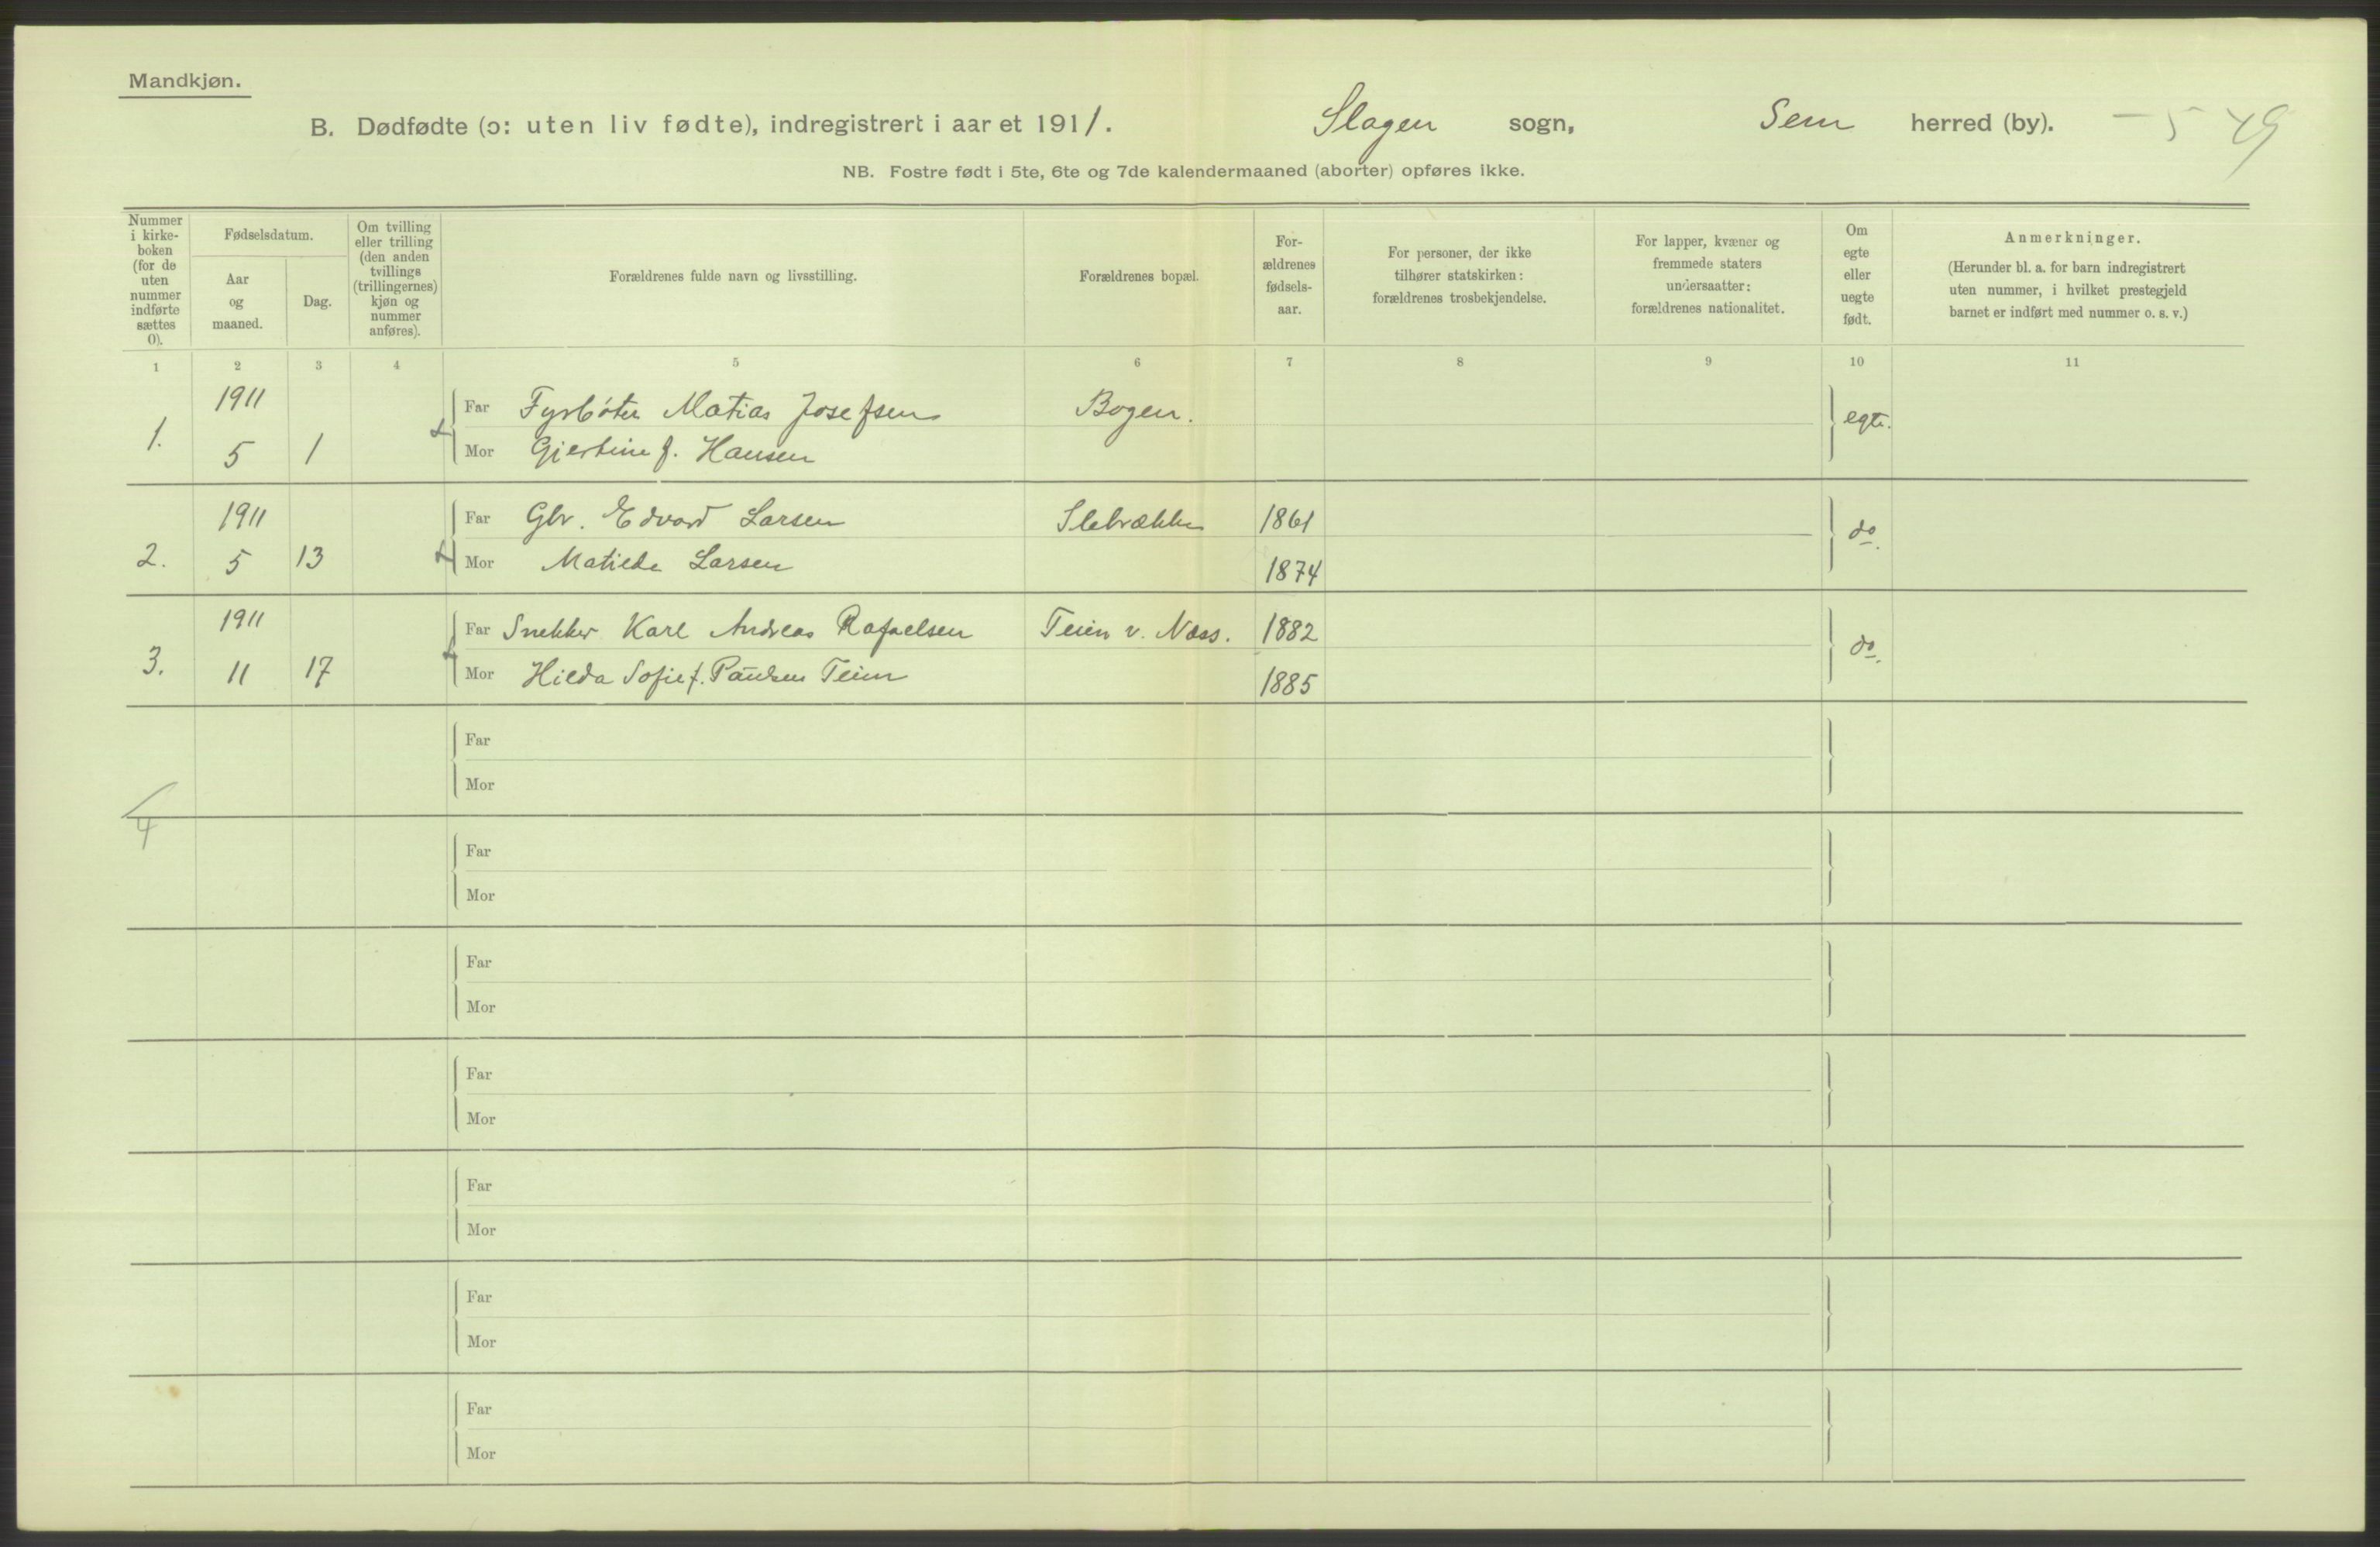 Mandkjøn.
B. Dødfødte (ɔ: uten liv fødte), indregistrert i aaret 1911. Slagen sogn, Sem herred (by). – 5 49
NB. Fostre født i 5te, 6te og 7de kalendermaaned (aborter) opføres ikke.
Nummer i kirke-boken (for de uten nummer indførte sættes 0).
Fødselsdatum.
Aar og maaned.
Dag.
Om tvilling eller trilling (den anden tvillings (trillingernes) kjøn og nummer anføres).
Forældrenes fulde navn og livsstilling.
Forældrenes bopæl.
For-ældrenes fødsels-aar.
For personer, der ikke tilhører statskirken: forældrenes trosbekjendelse.
For lapper, kvæner og fremmede staters undersaatter: forældrenes nationalitet.
Om egte eller uegte født.
Anmerkninger.
(Herunder bl. a. for barn indregistrert uten nummer, i hvilket prestegjeld barnet er indført med nummer o. s. v.)
1 2 3 4 5 6 7 8 9 10 11
1911 Far Fyrbøter Matias Josefsen Bogen. egte.
1. 5 1 Mor Gjertine f. Hansen
1911 Far Gbr. Edvard Larsen 1861 do.
2. 5 13 Mor Matilde Larsen 1874
1911 Far Snekker Karl Andreas Rafaelsen Teien v. Næss. 1882 do.
3. 11 17 Mor Hilda Sofie f. Paulsen Teien 1885
Far
Mor
4
Far
Mor
Far
Mor
Far
Mor
Far
Mor
Far
Mor
Far
Mor